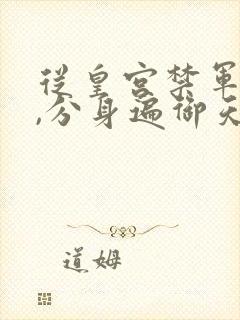 從皇宮禁軍
,分身遍御天
道姆